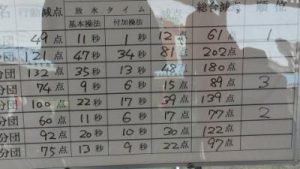 名 行動減点 放水タイム 総合減点 順位
基本操法 付加操法
49点 11秒 1秒 12点 61点 1
分団 121点 47秒 34秒 81点 202点
分団 132点 35秒 13秒 48点 180点
分団 74点 9秒 6秒 15点 89点 3
分団 100点 22秒 17秒 39点 139点
分団 60点 11秒 6秒 17点 77点 2
分団 92点 20秒 10秒 30点 122点
分団 75点 13秒 9秒 22点 97点